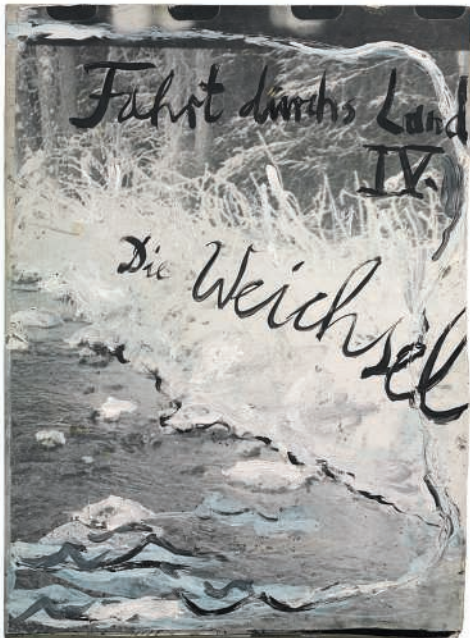 Fahrt durchs Land
IV.
Die Weichsel